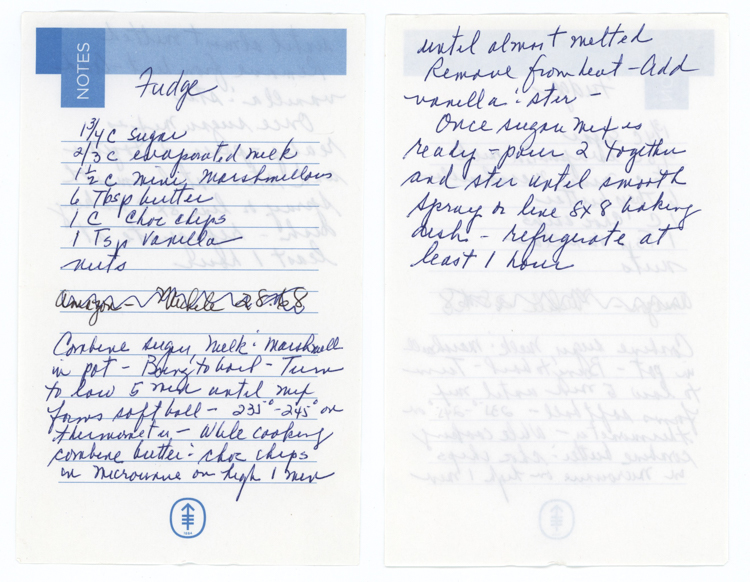 NOTES
Fudge
1 3/4 C sugar
2/3 C evaporated milk
1 1/2 C mini marshmellows
6 Tbsp butter
1 C choc chips
1 Tsp vanilla
nuts
Amazon -
Combine sugar, milk & marshmell
in pot - Bring to boil - Turn
to low 5 min until mix
forms soft ball - 235° - 245° on
thermometer - While cooking
combine butter & choc chips
in microwave on high 1 min
until almost melted
Remove from heat - Add
vanilla & ster -
Once sugar mix is
ready - pour 2 together
and ster until smooth
Spray or line 8x8 baking
dish - refrigerate at
least 1 hour